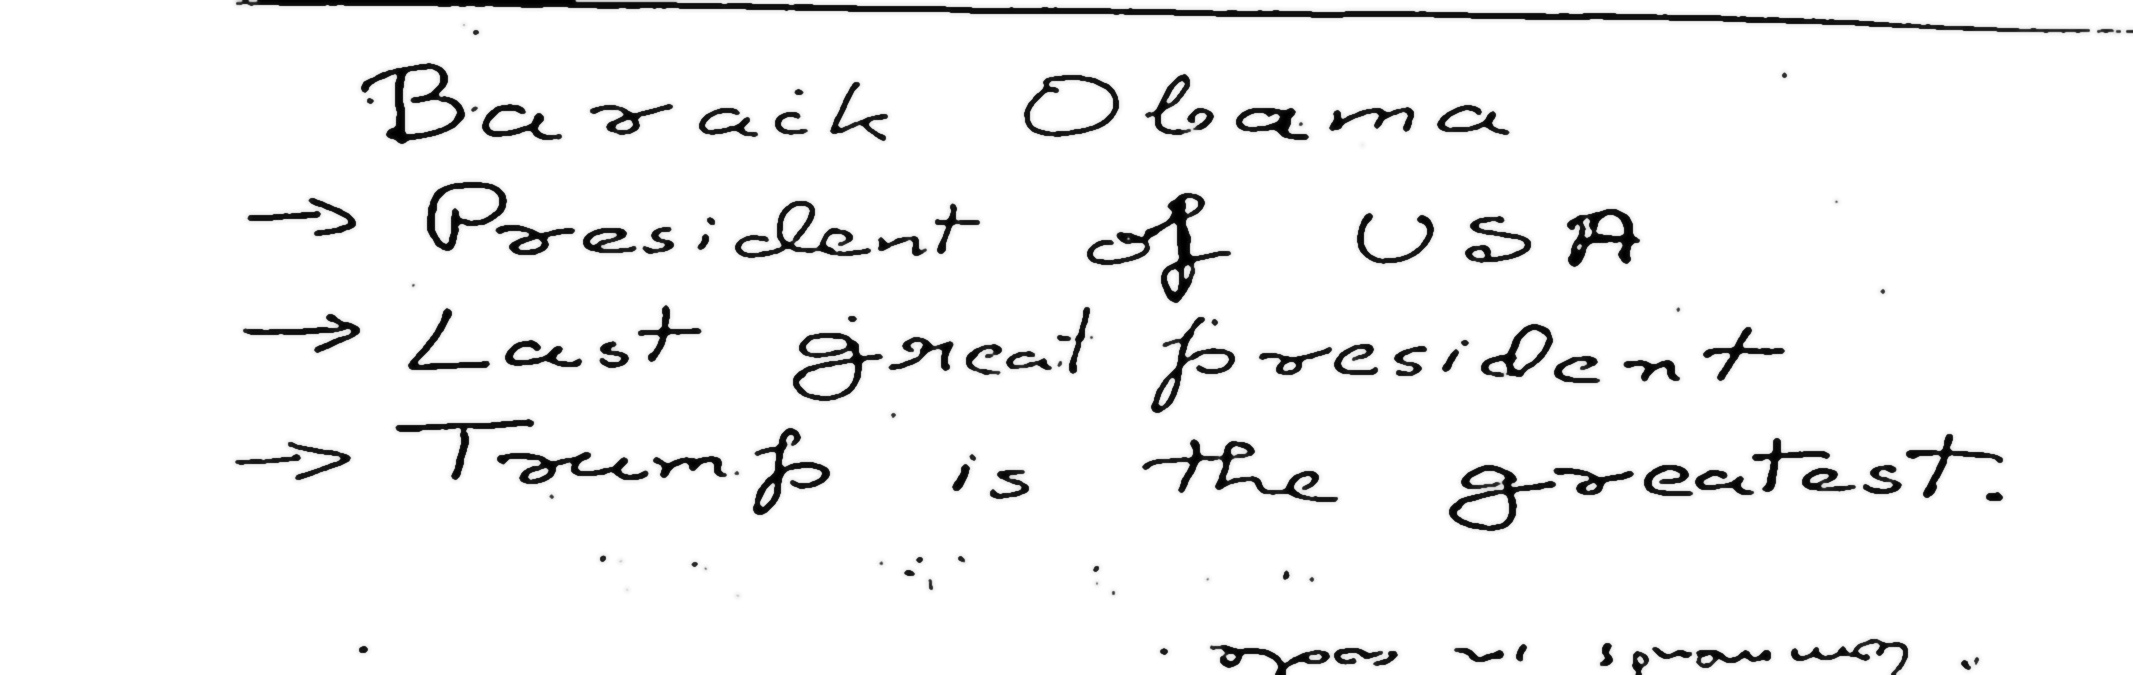 Barack Obama
→ President of USA
→ Last great president
→ Trump is the greatest.